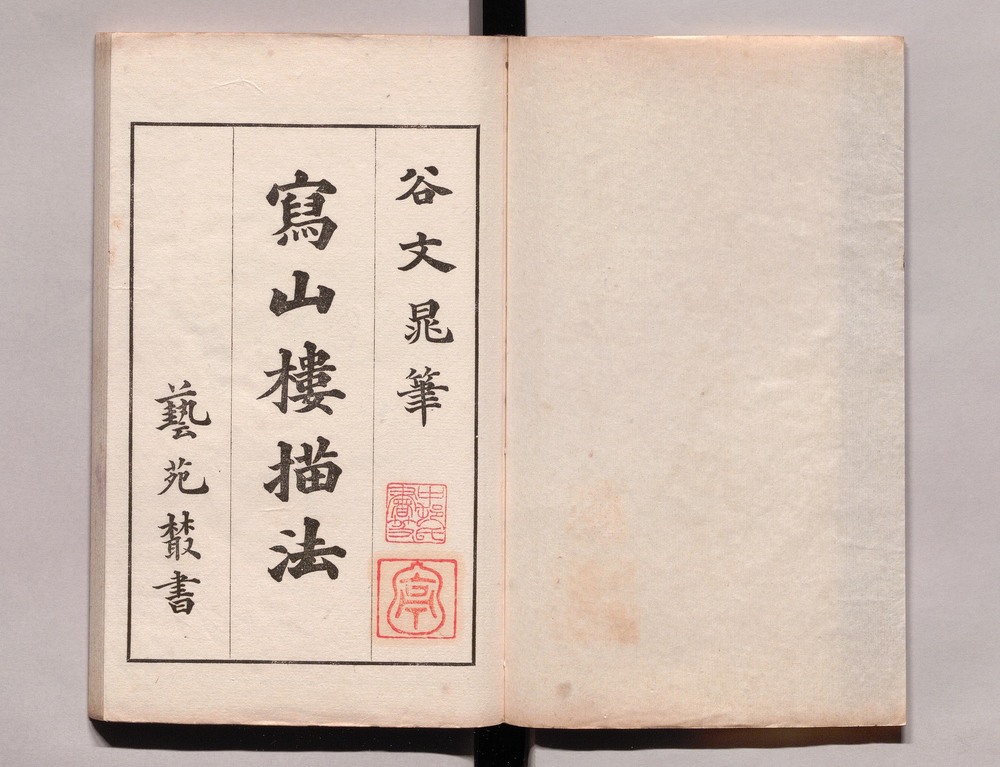 谷文晁筆
寫山樓描法
藝苑叢書